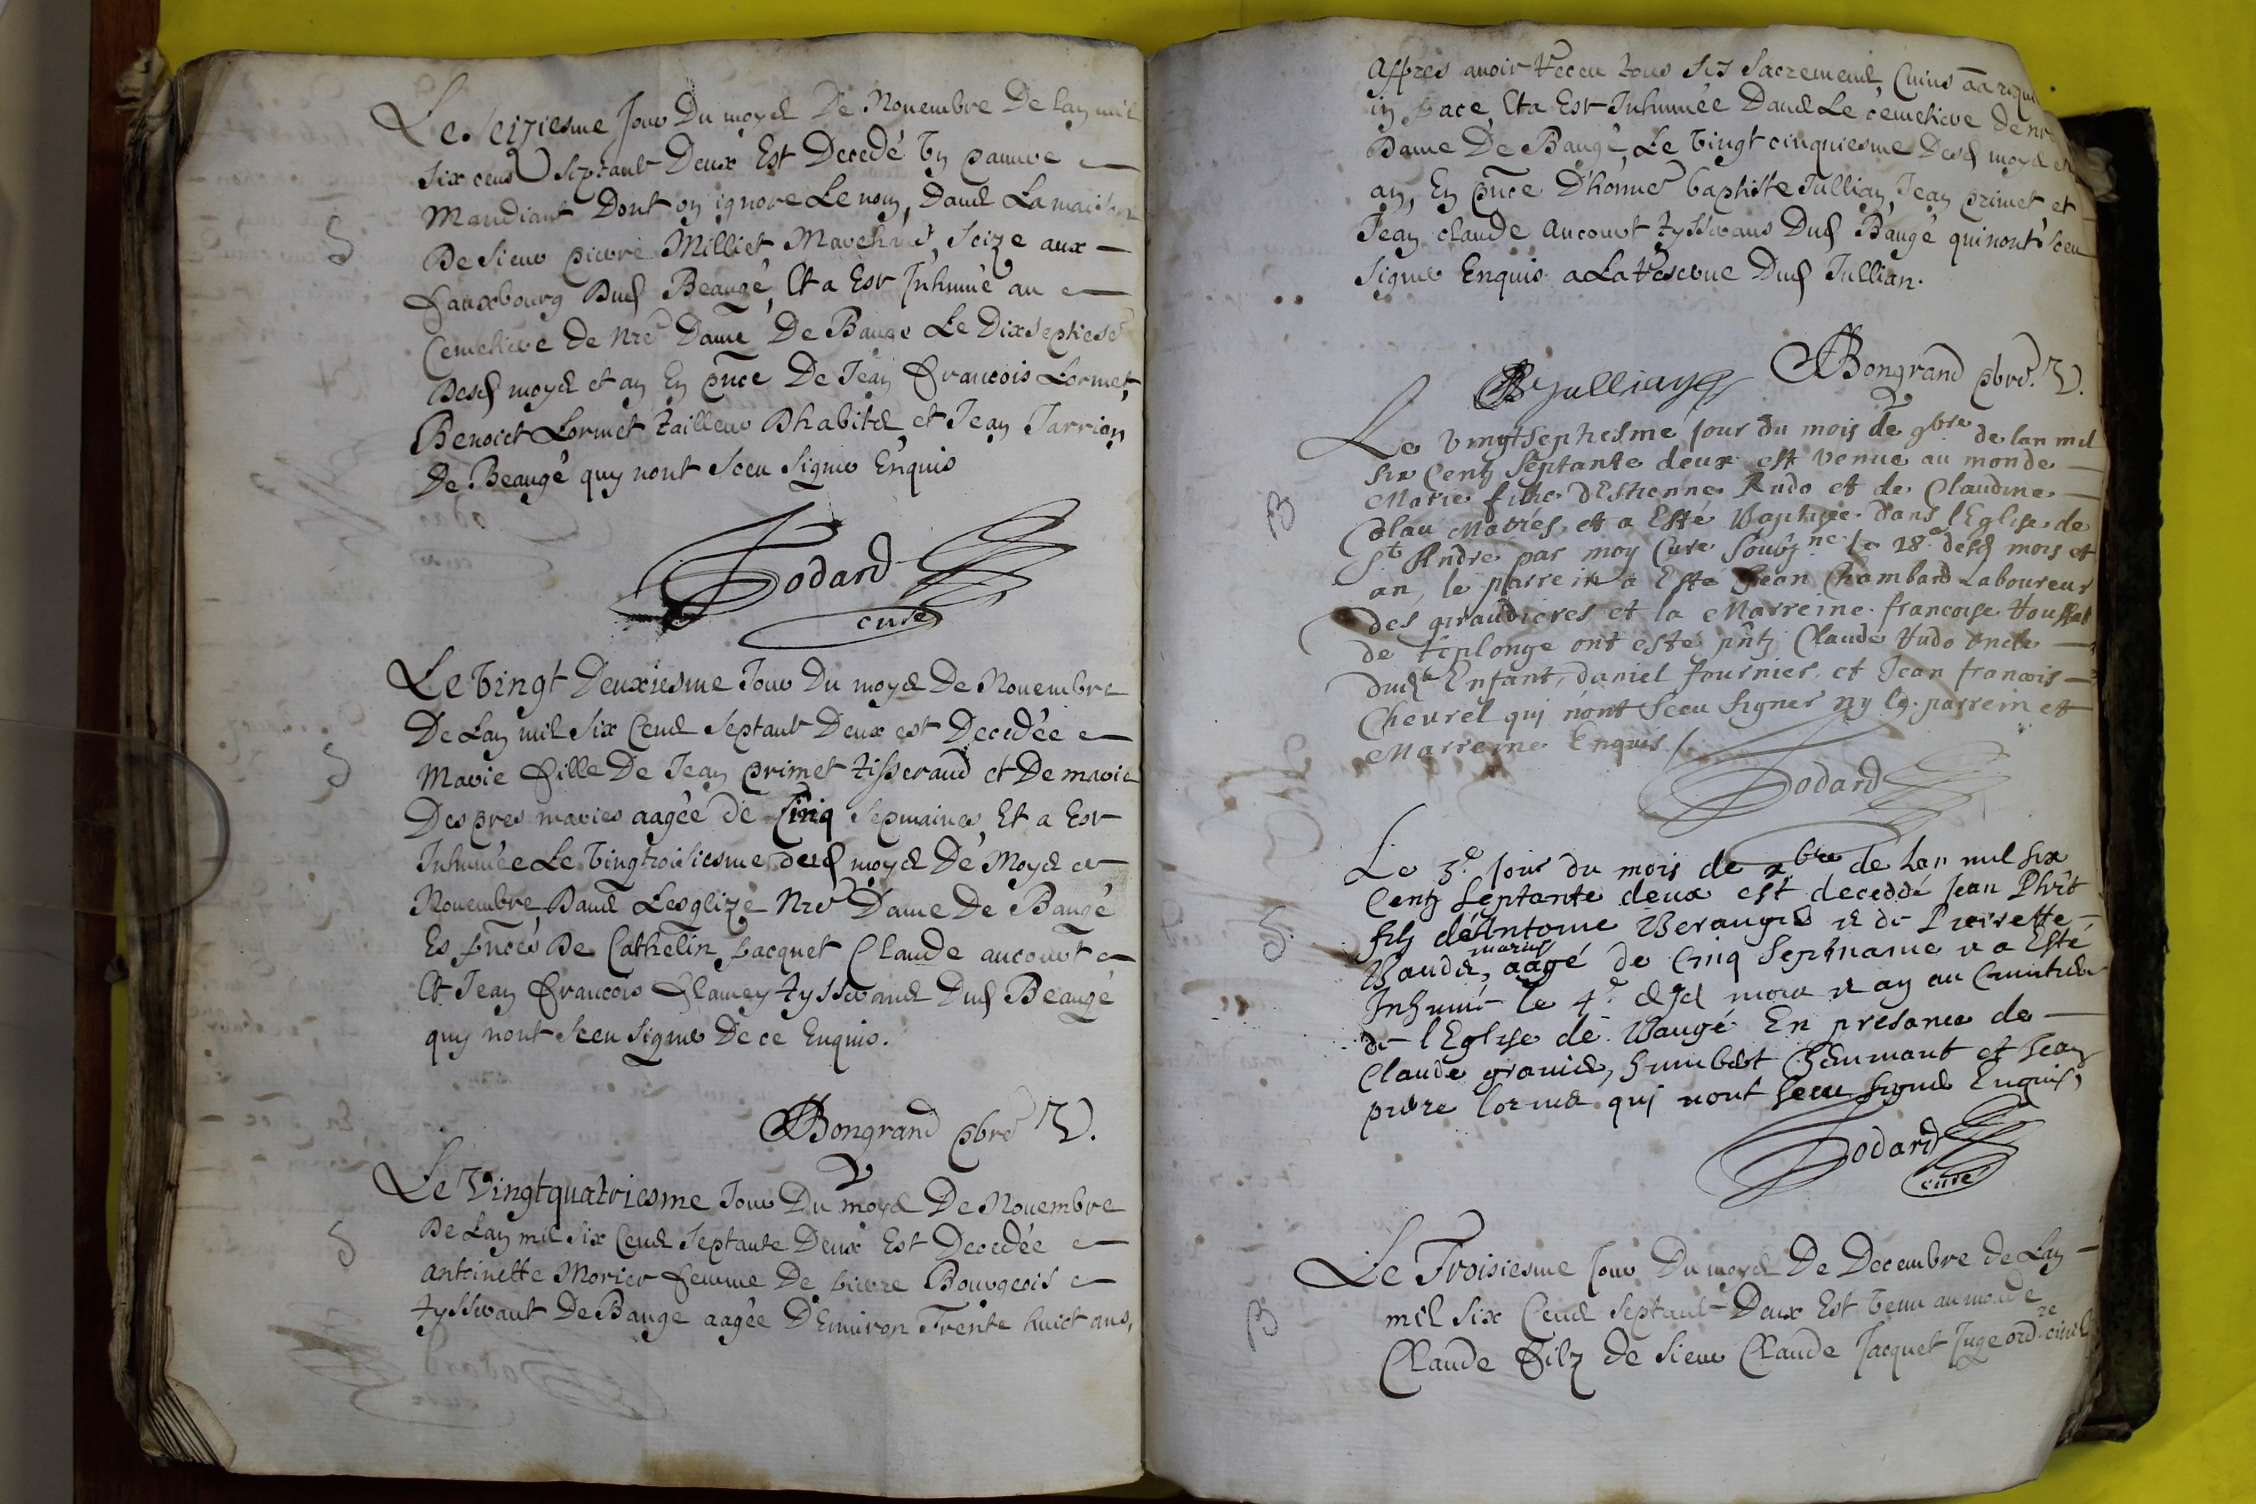 Le seiziesme Jour Du moys De Novembre De Lan mil
six cens septante Deux Est Decedé un pauvre
Mandiant Dont on ignore Le nom, Dans La maison
De sieur pierre Milliet Marchand, scize aux
fauxbourg Dud Beaugé, Et a Est Inhumé au
Cemetiere de Nre Dame De Bauge Le Dixseptiesme
Desd moys et an En pnce De Jean François Lormet,
Benoict Lormet tailleur Dhabits, et Jean Jarrion
De Beaugé quy nont sceu signer Enquis
Godard
curé
D
Le Vingt Deuxiesme Jour Du moys De Novembre
De Lan mil six Cens septante Deux est Decedée
Marie fille De Jean primet tisserand et De marie
Despres mariés aagée de Cinq sepmaines, Et a Est
Inhumée Le Vingtroisiesme desd moys De Moys et
Novembre Dans Lesglize Nre Dame De Baugé
Es pnces De Cathelin Jacquet Claude aucourt
Et Jean François flamey tysserands Dud Beaugé
quy nont sceu signer De ce Enquis.
Bongrand pbre V.
D
Le Vingtquatriesme Jour Du moys De Novembre
De Lan mil six Cens septante Deux Est Decedée
Antoinette Morier femme De pierre Bourgeois
tysserant De Bauge aagée D'Environ Trente huict ans,
D
Appres avoir receu tous ses sacremens, Cuius aa requi
in pace, Et a Est Inhumée Dans Le cemetiere De nre
Dame De Baugé, Le Vingt cinquiesme Desd moys et
an, En pnce D'honner baptiste Jullian, Jean primet, et
Jean claude aucourt tysserans Dud Baugé qui nont sceu
signer Enquis a La reserve Dud Jullian.
B Jullian Bongrand pbre V.
Le vingtseptiesme jour du mois de 9bre de lan mil
six Centz septante deux est venue au monde
Marie fille d'Estienne Rudo et de Claudine
mariés et a Esté Baptisée dans l'Eglise de
St Andre par moy Curé soubzne le 28e desd mois et
an, le parrein a Esté Jean Chambard Laboureur
des giraudieres et la Marreine francoise
de Replonge ont esté pntz Claude Rudo oncle
dud Enfant, daniel fournier, et Jean francois
Chevrel qui nont sceu signer ny le parrein et
Marreine Enquis
Godard
B
Le 3e jour du mois de xbre de lan mil six
Centz septante deux est deceddé Jean Phlt
filz d'Antoine Beranger et de Pierrette
mariés
Baudet, aagé de Cinq sepmaine et a Esté
Inhumé le 4e desd mois et an au Cimitiere
de l'Eglise de Baugé En presance de
Claude granier, humbert Chaumant et Jean
pierre lormet qui nont sceu signer Enquis,
Godard
curé
D
Le Troisiesme Jour Du moys De Decembre de Lan
mil six Cens septante Deux Est venu au monde
Claude filz de sieur Claude Jacquet Juge ordre civil
B